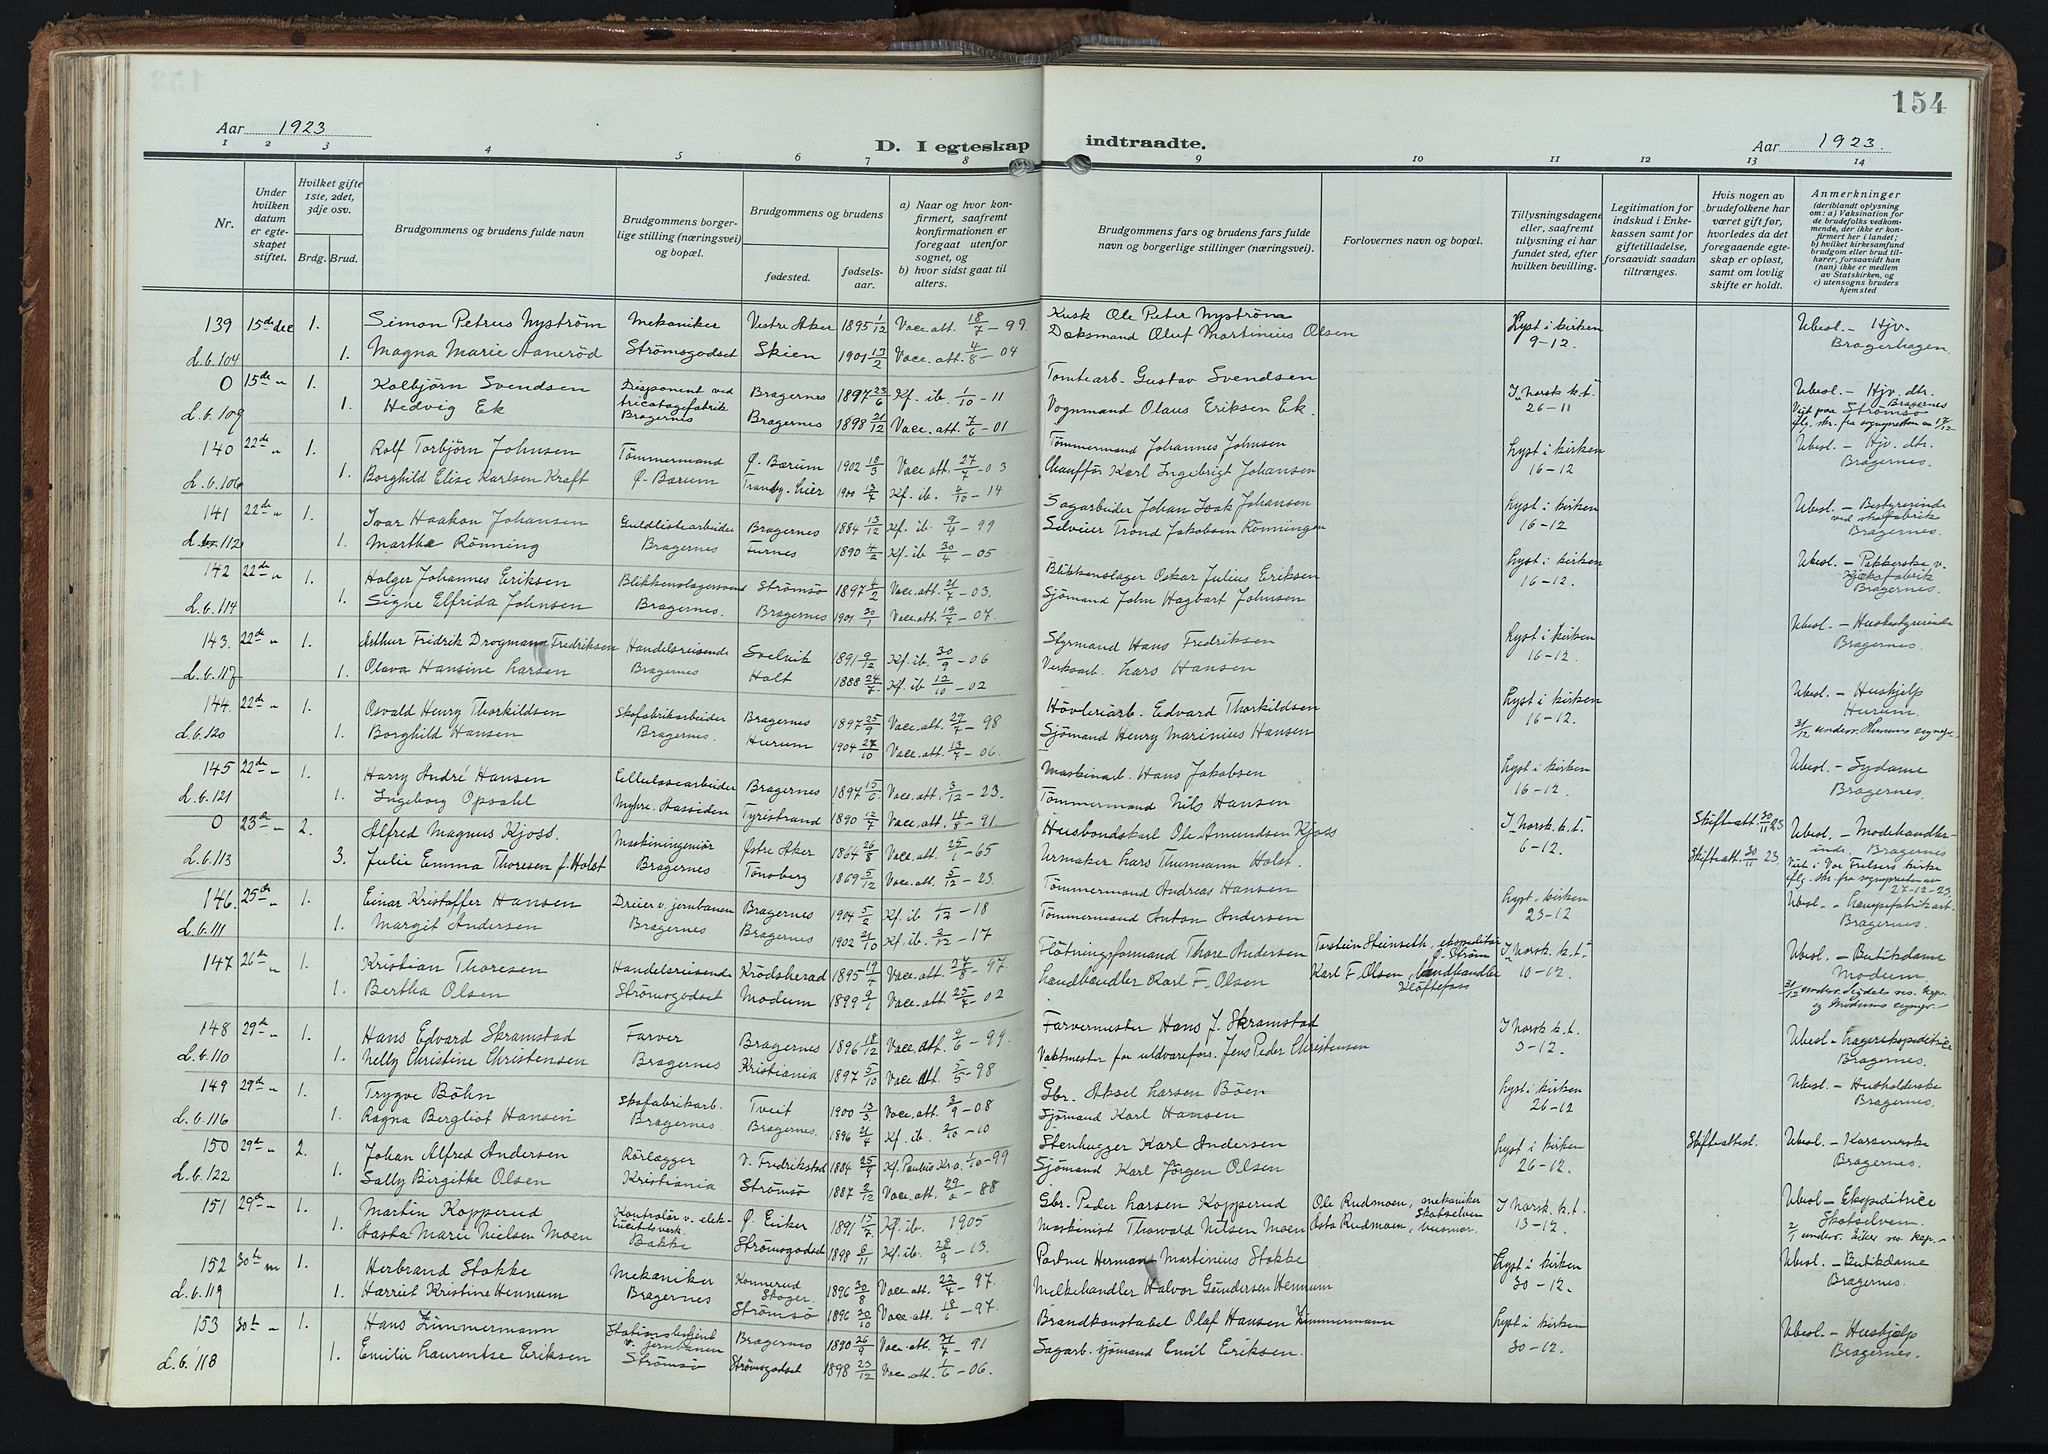 154
Aar 1923
D. I egteskap indtraadte.
Aar 1923.
1 2 3 4 5 6 7 8 9 10 11 12 13 14
Nr.
Under hvilken datum er egteskapet stiftet.
Hvilket gifte 1ste, 2det, 3dje osv.
Brdg. Brud.
Brudgommens og brudens fulde navn
Brudgommens borgerlige stilling (næringsvei) og bopæl.
Brudgommens og brudens
fødested.
fødselsaar.
a) Naar og hvor konfirmert, saafremt konfirmationen er foregaat utenfor sognet, og
b) hvor sidst gaat til alters.
Brudgommens fars og brudens fars fulde navn og borgerlige stillinger (næringsvei).
Forlovernes navn og bopæl.
Tillysningsdagene eller, saafremt tillysning ei har fundet sted, efter hvilken bevilling.
Legitimation for indskud i Enkekassen samt for giftetilladelse, forsaavidt saadan tiltrænges.
Hvis nogen av brudefolkene har været gift før, hvorledes da det foregaaende egteskap er opløst, samt om lovlig skifte er holdt.
Anmerkninger
(deriblandt oplysning om: a) Vaksination for de brudefolks vedkommende, der ikke er konfirmert her i landet; b) hvilket kirkesamfund brudgom eller brud tilhører, forsaavidt han (hun) ikke er medlem av Statskirken, og c) utensogns bruders hjemsted
139 15de dec 1. Simon Petrus Nyström Mekaniker Vestre Aker 1895 1/12 Vacc. att. 18/7 – 99. Kusk Ole Peter Nyström Lyst i kirken Ubesl. – Hjv.
L.b. 104 1. Magna Marie Aaneröd Strömsgodset Skien 1901 13/2 Vacc. att. 4/8 – 04 Dæksmand Oluf Martinius Olsen 9-12. Bragerhagen.
0 15de " 1. Kolbjörn Svendsen Disponent ved Bragernes 1897 23/6 Kf. ib. 1/10 – 11 Tomtearb. Gustav Svendsen I norsk k.t. Ubesl. – Hjv. dtr.
L.b. 109 1. Hedvig Ek tricotagefabrik Bragernes Bragernes 1898 21/12 Vacc. att. 7/6 – 01 Vognmand Olaus Eriksen Ek. 26-11 Bragernes
Viet paa Strömsö
flg. skr. fra sognepresten av 17/12
140 22de " 1. Rolf Torbjörn Johnsen Tömmermand Ø. Bærum 1902 18/3 Vacc. att. 27/7 – 03 Tömmermand Johannes Johnsen Lyst i kirken Ubesl. – Hjv. dtr.
L.b. 106 1. Borghild Elise Karlsen Kraft Ø. Bærum Tranby. Lier 1900 13/7 Kf. ib. 4/10 – 14 Chauffør Karl Ingebrigt Johansen 16-12 Bragernes.
141 22de " 1. Ivar Haakon Johansen Guldlistearbeider Bragernes 1884 13/12 Kf. ib 9/4 – 99 Sagarbeider Johan Isak Johansen Lyst i kirken Ubesl. – Bestyrerinde
L.b. 112 1. Marthe Rönning Bragernes Furnes 1890 4/2 Kf. ib 30/4 – 05 Selveier Trond Jakobsen Rönningen 16-12 ved skofabrik Bragernes.
142 22de " 1. Holger Johannes Eriksen Blikkenslagersvend Strömsö 1897 4/2 Vacc. att. 21/7 – 03. Blikkenslager Oskar Julius Eriksen Lyst i kirken Ubesl. – Pakkerske v.
L.b. 114 1. Signe Elfrida Johnsen Bragernes. Bragernes 1901 20/1 Vacc. att. 19/7 – 07. Sjömand John Hagbart Johnsen 16-12. kjæksfabrik Bragernes.
143. 22de " 1. Arthur Fridrik Drogmann Fredriksen Handelsreisende Svelvik 1891 9/12 Kf. ib. 30/9 – 06 Styrmand Hans Fredriksen Lyst i kirken Ubesl. – Husbestyrerinde
L.b. 117 1. Olava Hansine Larsen Bragernes Holt 1888 24/7 Kf. ib 12/10 – 02 Verksarb. Lars Hansen 16-12. Bragernes.
144. 22de " 1. Osvald Henry Thorkildsen Skofabrikarbeider Bragernes 1897 25/9 Vacc. att. 29/7 – 98 Hövleriarb. Edvard Thorkildsen Lyst i kirken Ubesl. – Hushjelp
L.b. 120 1. Borghild Hansen Bragernes. Hurum 1904 27/10 Vacc. att. 13/7 – 06. Sjömand Henry Marinius Hansen 16-12 Hurum.
31/12 underr. Hurums sognepr.
145 22de " 1. Harry André Hansen Cellulosearbeider Bragernes 1897 15/6 Vacc. att. 3/12 – 23. Maskinarb. Hans Jakobsen Lyst i kirken Ubesl. – Sydame
L.b. 121 1. Ingeborg Opsahl Myhre. Hassiden Tyristrand 1890 12/7 Vacc. att. 18/8 – 91. Tömmermand Nils Hansen 16-12. Bragernes.
0 23de " 2. Alfred Magnus Kjoss. Maskiningeniör Østre Aker 1864 26/8 Vacc. att. 25/1 – 65 Husbondskarl Ole Amundsen Kjoss I norsk. k.t. Skifteatt. 30/11 23 Ubesl. – Modehandlerinde, Bragernes
L.b. 113 3. Julie Emma Thoresen f. Holst Bragernes Tönsberg 1869 5/12 Vacc. att. 3/12 – 23. Urmaker Lars Thurmann Holst. 6-12. Skifteatt. 30/11 23. Viet i Vor Frelsers kirke
flg. skr. fra sognepresten av 27-12-23
146. 25de " 1. Einar Kristoffer Hansen Dreier v. jernbanen Bragernes 1904 5/2 Kf. ib 1/12 – 18 Tömmermand Andreas Hansen Lyst. i kirken Ubesl. – Lampefabrikarb.
L.b. 111 1. Margit Andersen Bragernes Bragernes 1902 21/10 Kf. ib. 2/12 – 17 Tömmermand Anton Andersen 23-12 Bragernes.
147 26de " 1. Kristian Thoresen Handelsreisende Krödsherad 1895 19/7 Vacc. att. 24/8 – 97. Flötningsformand Thore Andersen Torstein Steinseth, ekspeditör Ø. Ström I norsk k.t. Ubesl. – Butikdame
1. Bertha Olsen Strömsgodset Modum 1899 9/1 Vacc. att. 25/7 02 Landhandler Karl F. Olsen Karl F. Olsen, landhandler Kløftefoss 10-12. Modum
31/12 underr. Sigdals res. kap. og Modums sognepr. –
148 29de " 1. Hans Edvard Skramstad Farver Bragernes 1896 18/12 Vacc. att. 9/6 – 99. Farvermester Hans J. Skramstad I norsk k.t. Ubesl – Lagerekspeditrice
L.b. 110 1. Nelly Christine Christensen Bragernes. Kristiania 1897 5/10 Vacc. att. 5/5 – 98 Vaktmester for uldvareforr. Jens Peder Christensen 3-12. Bragernes.
149 29de " 1. Trygve Böhn Skofabrikarb. Tveit 1900 13/3 Vacc. att. 3/9 – 08 Gbr. Aksel Larsen Böen Lyst i kirken Ubesl. – Husholderske
L.b. 116 1. Ragna Bergliot Hansen Bragernes. Bragernes. 1896 21/4 Kf. ib. 2/10 – 10 Sjömand Karl Hansen 26-12 Bragernes.
150 29de " 2. Johan Alfred Andersen Rörlegger V. Fredrikstad 1884 25/9 Kf. Paulus Kra. 1/10 – 99 Stenhugger Karl Andersen Lyst i kirken Skifteattest. Ubesl. – Kassererske
L.b. 122 1. Sally Birgitke Olsen Kristiania Strömsö 1887 2/12 Vacc. att. 29/6 – 88 Sjömand Karl Jörgen Olsen 26-12. Bragernes.
151 29de " 1. Martin Kopperud Kontrolör v. elektricitetsverk Ø. Eiker 1891 15/7 Kf. ib. 1905 Gbr. Peder Larsen Kopperud Ole Rudmoen, mekaniker Skotselven I norsk k.t. Ubesl – Ekspeditrice
1. Hasta Marie Nielsen Moen Bakke Strömsgodset 1898 6/11 Kf. ib. 28/9 – 13. Maskinist Thorvald Nilsen Moen Asta Rudmoen, husmor. 13-12. Skotselven.
2/1 underr. Eiker res. kap. –
152 30te " 1. Herbrand Stokke Mekaniker Konnerud Skoger. 1896 30/8 Vacc. att. 22/7 – 97. Portner Hermann Martinius Stokke Lyst i kirken Ubesl. – Butikdame
L.b. 119 1. Harriet Kristine Hennum Bragernes Strömsö 1896 20/10 Vacc. att. 18/6 – 97. Melkehandler Halvor Gundersen Hennum 30-12. Bragernes.
153 30te " 1. Hans Zimmermann Stationsbetjent v. jernbanen Bragernes 1890 26/9 Vacc. att. 21/7 – 91 Brandkonstabel Olaf Hansen Zimmermann Lyst i kirken Ubesl – Hushjælp
L.b. 118 1. Emilie Laurentse Eriksen Strömsö Strömsgodset 1898 23/12 Vacc. att. 1/6 – 06. Sagarb. sjömand Emil Eriksen. 30-12. Bragernes.